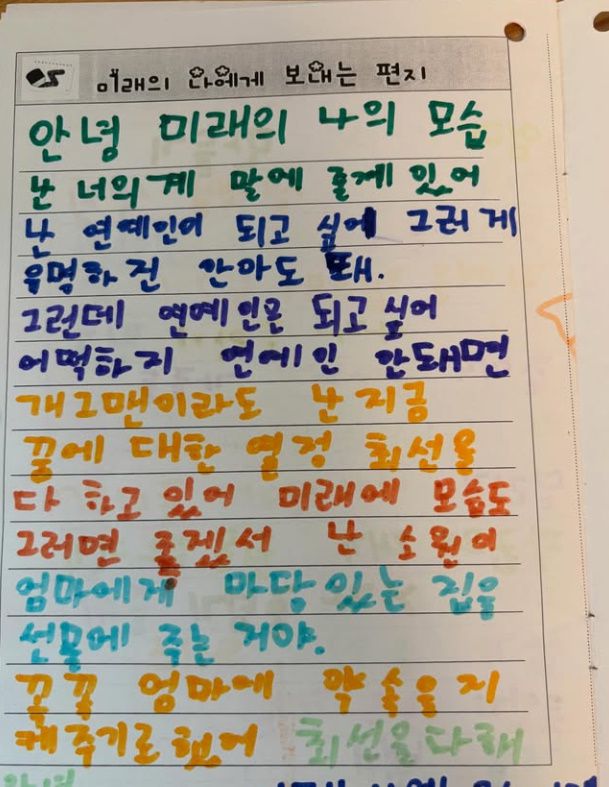 미래의 나에게 보내는 편지
안녕 미래의 나의 모습
난 너의게 말에 줄게 있어
난 연예인이 되고 싶에 그러게
유명하진 안아도 돼.
그런데 연예인은 되고 싶어
어떡하지 연예인 안돼면
개그맨이라도 난 지금
꿈에 대한 열정 최선을
다 하고 있어 미래에 모습도
그러면 좋겠서 난 소원이
엄마에게 마당 있는 집을
선물에 주는 거야.
꼭꼭 엄마에 약속을 지
켜주기로 했어 최선을다해